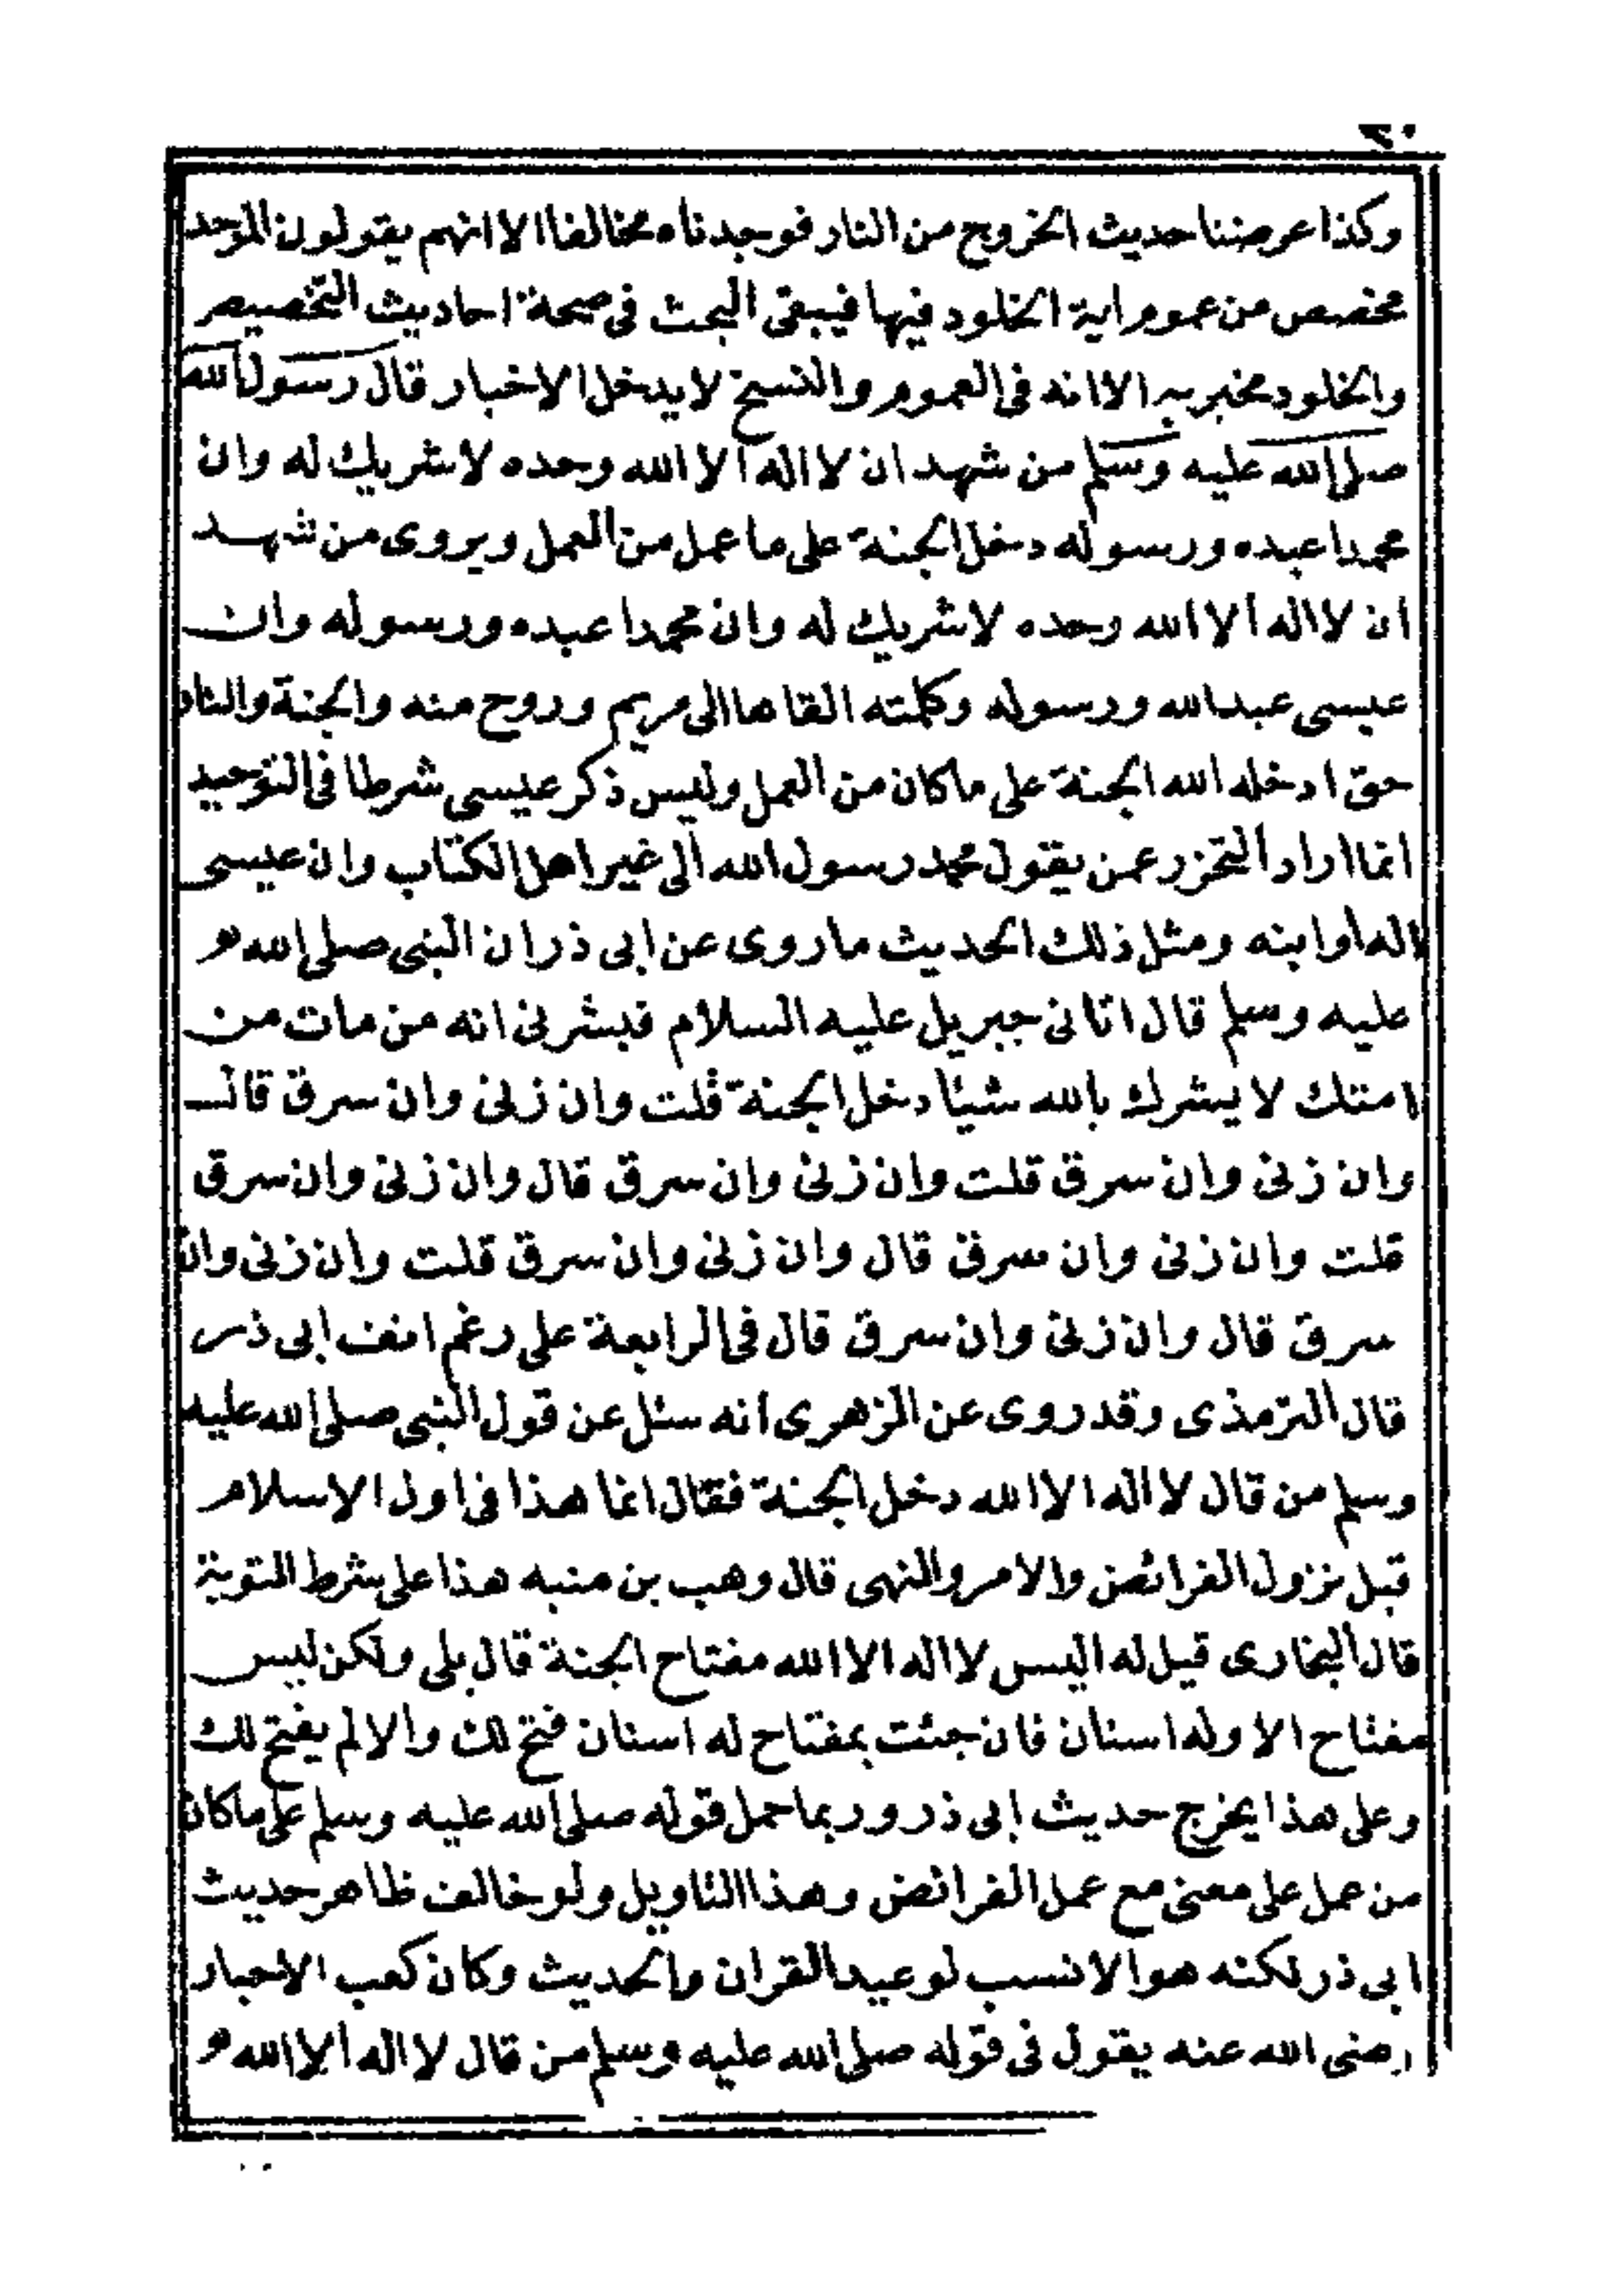 ٢٠
وكذا عرضنا حديث الخروج من النار فوجدناه مخالفا الا انهم يقولون الموحد
مخصص من عموم اية الخلود فيها فيبقى البحث فى صحة احاديث التخصيص
والخلود مخبر به الا انه فى العموم والنسخ لا يدخل الاخبار قال رسول الله
صلى الله عليه وسلم من شهد ان لا اله الا الله وحده لا شريك له وان
محمدا عبده ورسوله دخل الجنة على ما عمل من العمل ويروى من شهد
ان لا اله الا الله وحده لا شريك له وان محمدا عبده ورسوله وان
عيسى عبد الله ورسوله وكلمته القاها الى مريم وروح منه والجنة والنار
حق ادخله الله الجنة على ما كان من العمل وليس ذكر عيسى شرطا فى التوحيد
انما اراد التحرز عمن يقول محمد رسول الله الى غير اهل الكتاب وان عيسى
اله او ابنه ومثل ذلك الحديث ما روى عن ابى ذر ان النبى صلى الله
عليه وسلم قال اتانى جبريل عليه السلام فبشرنى انه من مات من
امتك لا يشرك بالله شيئا دخل الجنة قلت وان زنى وان سرق قال
وان زنى وان سرق قلت وان زنى وان سرق قال وان زنى وان سرق
قلت وان زنى وان سرق قال وان زنى وان سرق قلت وان زنى وان
سرق قال وان زنى وان سرق قال فى الرابعة على رغم انف ابى ذر
قال الترمذى وقد روى عن الزهرى انه سئل عن قول النبى صلى الله عليه
وسلم من قال لا اله الا الله دخل الجنة فقال انما هذا فى اول الاسلام
قبل نزول الفرائض والامر والنهى قال وهب بن منبه هذا على شرط التوبة
قال البخارى قيل له اليس لا اله الا الله مفتاح الجنة قال بلى ولكن ليس
مفتاح الا وله اسنان فان جئت بمفتاح له اسنان فتح لك والا لم يفتح لك
وعلى هذا يخرج حديث ابى ذر وربما حمل قوله صلى الله عليه وسلم على ما كان
من عمل على معنى مع عمل الفرائض وهذا التاويل ولو خالف ظاهر حديث
ابى ذر لكنه هو الانسب لوعيد القران والحديث وكان كعب الاحبار
رضى الله عنه يقول فى قوله صلى الله عليه وسلم من قال لا اله الا الله